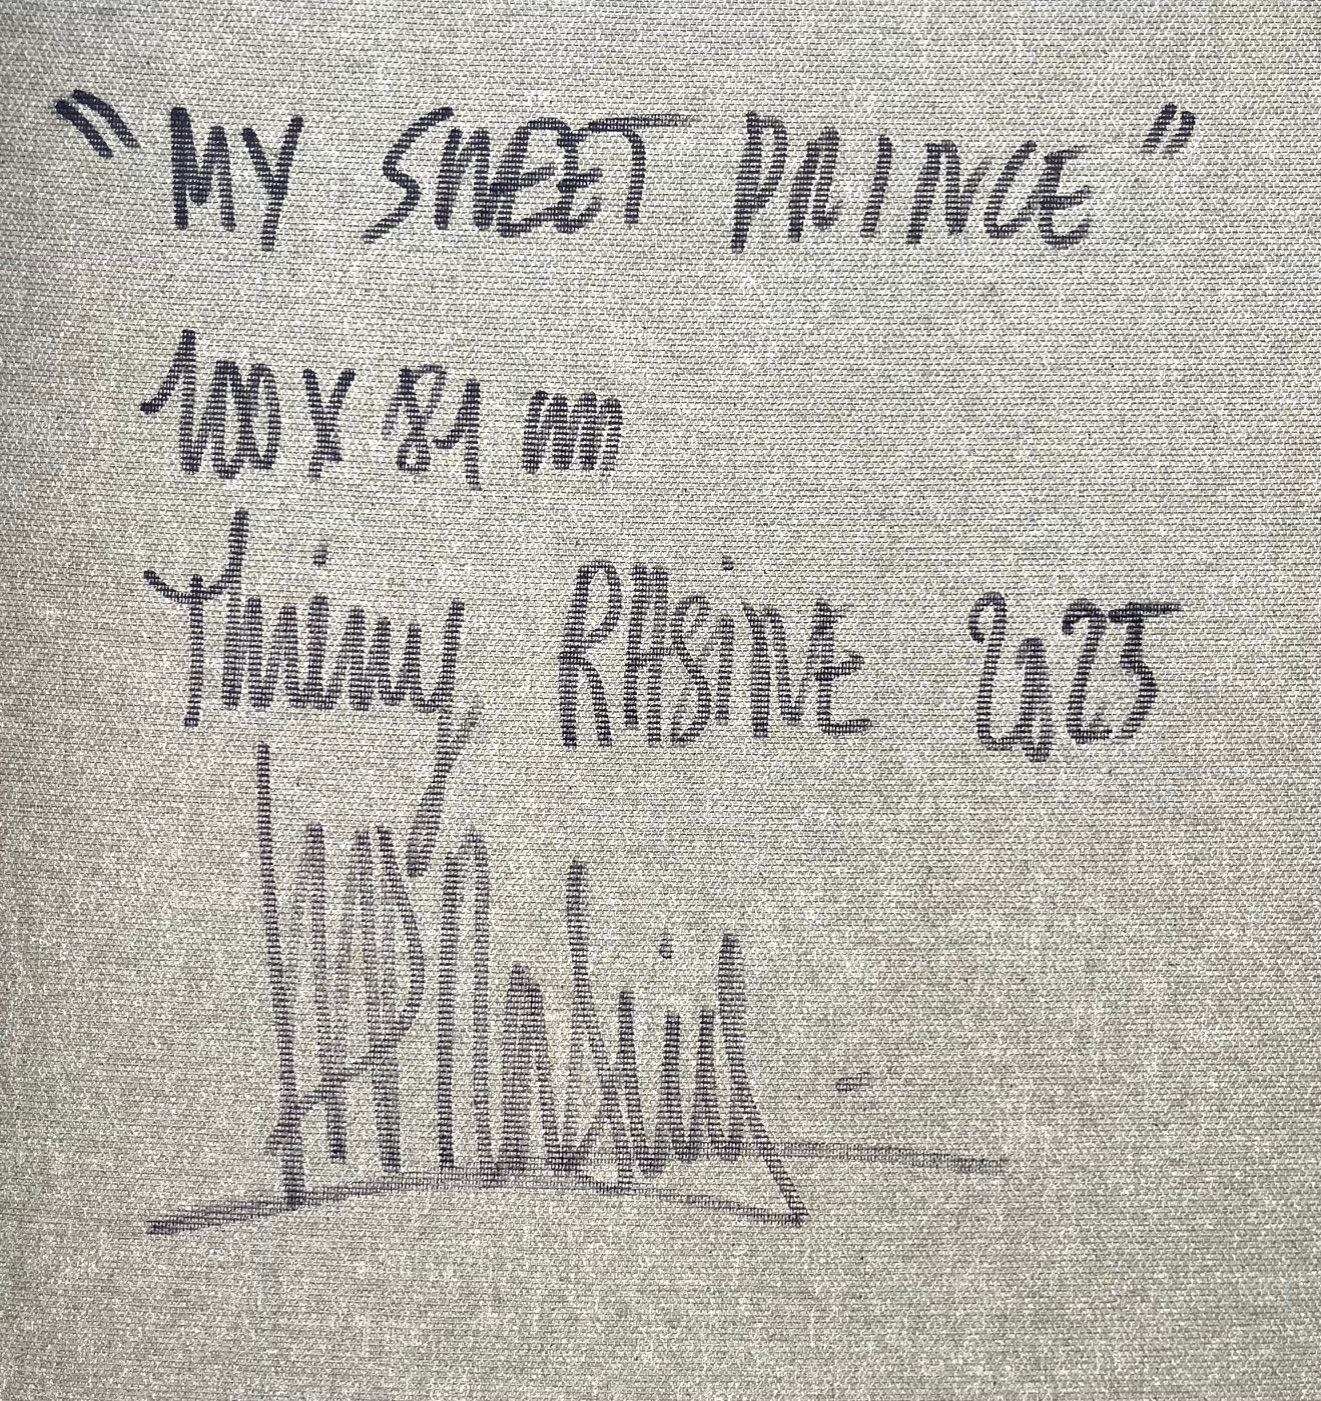 "MY SWEET PRINCE"
100 X 81 cm
Thierry RASINE 2025